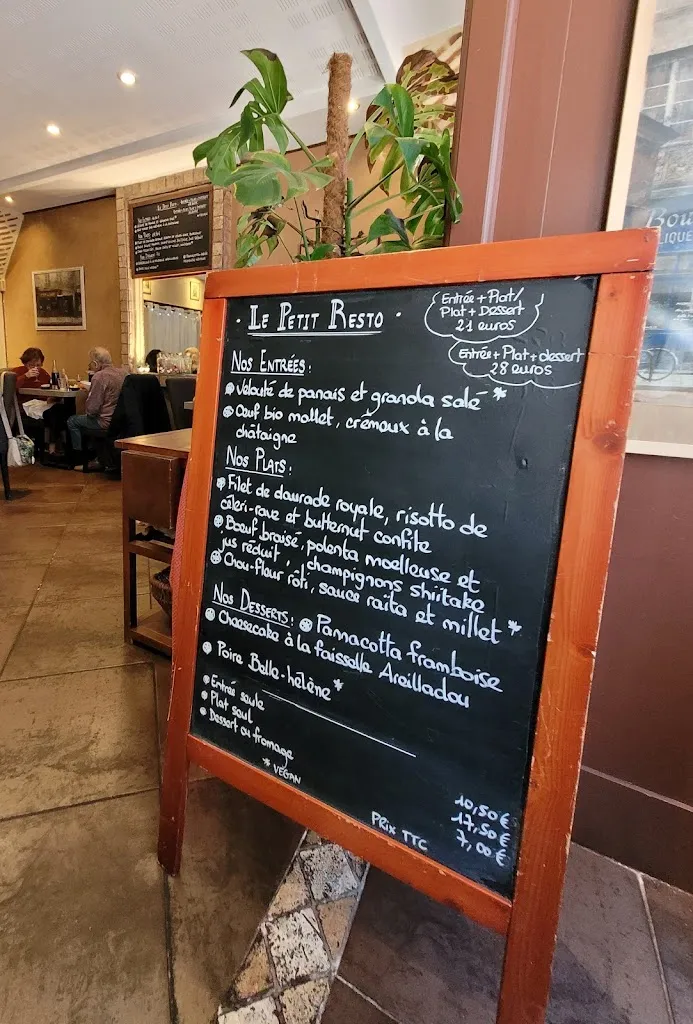 · LE PETIT RESTO ·
Entrée + Plat/
Plat + Dessert
21 euros
Entrée + Plat + dessert
28 euros
NOS ENTRÉES:
Velouté de panais et granola salé *
Œuf bio mollet, crémeux à la
châtaigne
NOS PLATS:
Filet de daurade royale, risotto de
céleri-rave et butternut confite
Boeuf braisé, polenta moelleuse et
jus réduit, champignons shiitake
Chou-fleur rôti, sauce raita et millet *
NOS DESSERTS: Pannacotta framboise
Cheesecake à la faisselle Areilladou
Poire Belle-hélène *
Entrée seule 10,50€
Plat seul 17,50€
Dessert ou fromage 7,00€
* VEGAN
PRIX TTC
LE PETIT RESTO